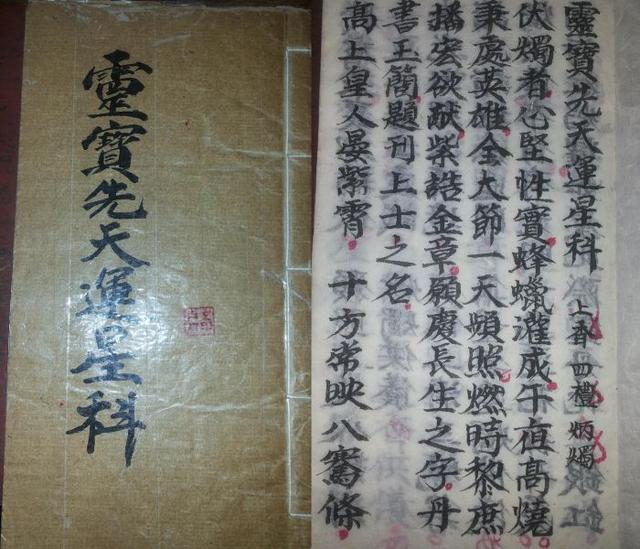 靈寶先天運星科
靈寶先天運星科 上香 四禮 炳燭
伏燭者心堅性實蜂蠟灌成午夜高燒
秉處英雄全大節一天頻照燃時黎庶
播宏欲献紫誥金章願慶長生之字丹
書玉簡題刊上士之名
高上皇人晏紫霄 十方帝映八騫條